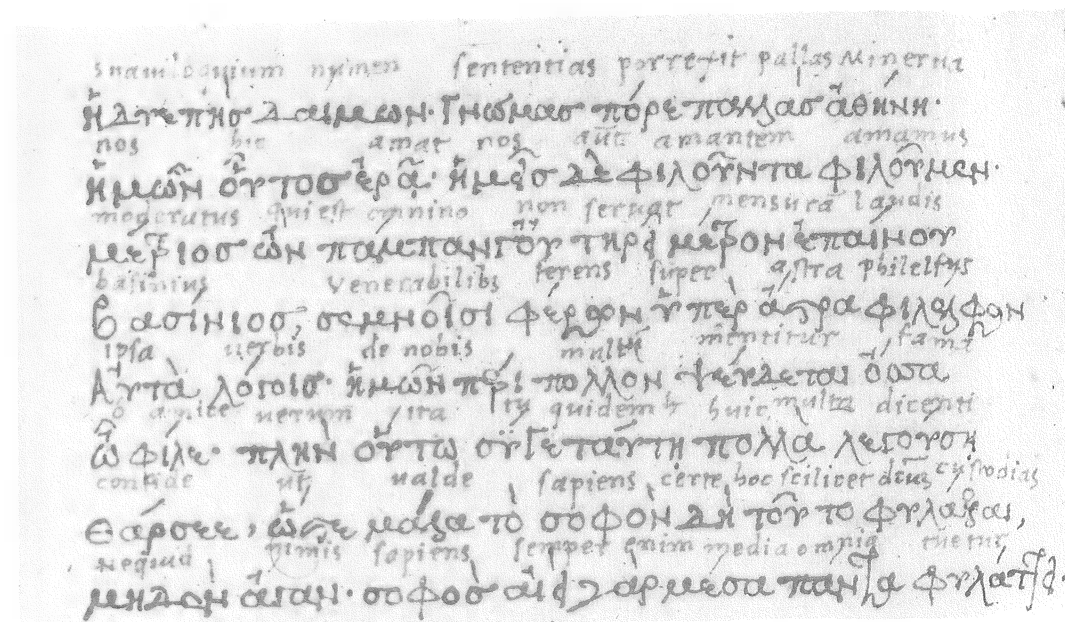 suauiloquium numen sententias porrexit pallas Minerua
ἡδυεπὴς δαίμων· Γνώμας πόρε παλλὰς ἀθήνη·
nos hic amat nos aūt amantem amamus
ἡμῶν οὗτος ἐρᾷ· ἡμεῖς δὲ φιλοῦντα φιλοῦμεν·
moderatus qui est omnino non seruat mensurā laudis
μέτριος ὢν πάμπαν γ' οὐ τηρεῖ μέτρον ἐπαίνου
basinius venerabilibs ferens super astra philelfus
βασίνιος, σεμνοῖσι φέρων ὑπὲρ ἄστρα φίλελφον
ipsa uerbis de nobis multū mentitur fama
Αὐτὰ λόγοις· ἡμῶν πέρι πολλὸν ψεύδεται ὄσσα
o amice uerum ita tu quidem huic multa dicenti
ὦ φίλε· πλὴν οὕτω σύ γε ταύτῃ πολλὰ λεγούσῃ
confide ut ualde sapiens certe hoc scilicet custodias
θάρσεε, ὥστε μάλα τὸ σοφὸν δὴ τοῦτο φυλάξαι,
Nequid nimis sapiens semper enim media omnia tuetur
μηδὲν ἄγαν· σοφὸς αἰεὶ γὰρ μέσα πάντα φυλάττει·